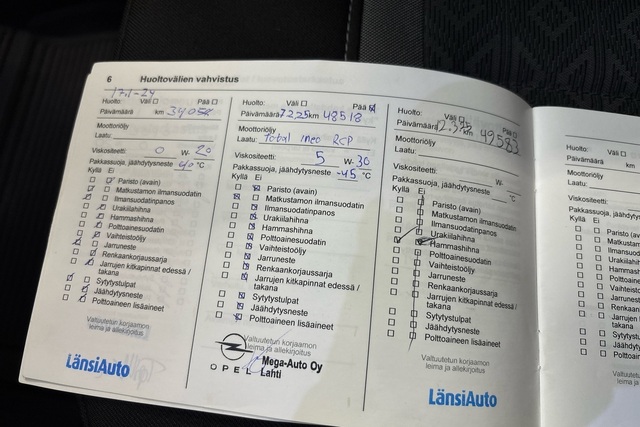 6 Huoltovälien vahvistus
17.1-24
Huolto: Väli Pää
Päivämäärä km
Moottoriöljy
Laatu:
Viskositeetti: 0 W- 20
Pakkassuoja, jäähdytysneste 40 °C
Kyllä Ei
Paristo (avain)
Matkustamon ilmansuodatin
Ilmansuodatinpanos
Urakiilahihna
Hammashihna
Polttoainesuodatin
Vaihteistoöljy
Jarruneste
Renkaankorjaussarja
Jarrujen kitkapinnat edessä / takana
Sytytystulpat
Jäähdytysneste
Polttoaineen lisäaineet
Valtuutetun korjaamon
leima ja allekirjoitus
LänsiAuto
Huolto: Väli Pää
Päivämäärä km 48518
Moottoriöljy
Laatu: Total ineo RCP
Viskositeetti: 5 W- 30
Pakkassuoja, jäähdytysneste -45 °C
Kyllä Ei
Paristo (avain)
Matkustamon ilmansuodatin
Ilmansuodatinpanos
Urakiilahihna
Hammashihna
Polttoainesuodatin
Vaihteistoöljy
Jarruneste
Renkaankorjaussarja
Jarrujen kitkapinnat edessä /
takana
Sytytystulpat
Jäähdytysneste
Polttoaineen lisäaineet
Valtuutetun korjaamon
leima ja allekirjoitus
OPEL
Mega-Auto Oy
Lahti
Huolto: Väli Pää
Päivämäärä km 49583
Moottoriöljy
Laatu:
Viskositeetti: W-
Pakkassuoja, jäähdytysneste °C
Kyllä Ei
Paristo (avain)
Matkustamon ilmansuodatin
Ilmansuodatinpanos
Urakiilahihna
Hammashihna
Polttoainesuodatin
Vaihteistoöljy
Jarruneste
Renkaankorjaussarja
Jarrujen kitkapinnat edessä /
takana
Sytytystulpat
Jäähdytysneste
Polttoaineen lisäaineet
Valtuutetun korjaamon
leima ja allekirjoitus
LänsiAuto
Huolto:
Päivämäärä
Moottoriöljy
Laatu:
Viskositeetti:
Pakkassuoja, jä
Kyllä Ei
Paristo (av
Matkustam
Ilmansuoda
Urakiilahih
Hammashi
Polttoaines
Vaihteistoö
Jarruneste
Renkaanko
Jarrujen
takana
Sytytystul
Jäähdytys
Polttoaine
Valtuutetu
leima ja